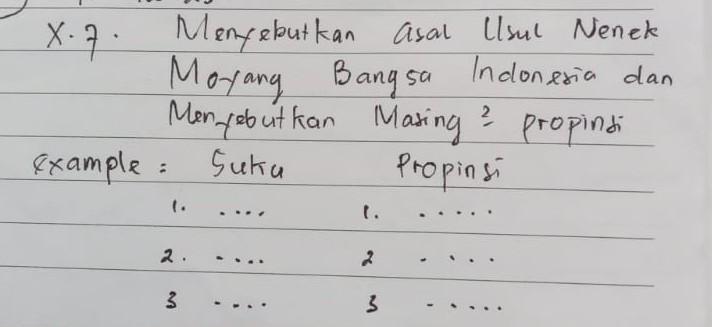 X.7. Menyebutkan asal Usul Nenek
Moyang Bangsa Indonesia dan
Menyebutkan Masing² propinsi
example : Suku Propinsi
1. .... 1. .....
2. .... 2 ....
3 .... 3 .....